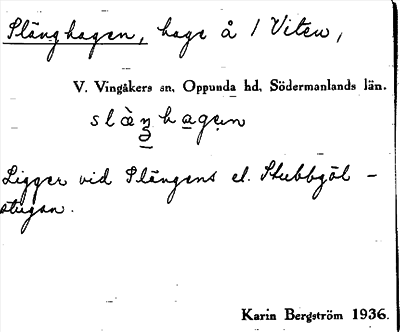 Slänghagen, hage å 1 Viten,
V. Vingåkers sn, Oppunda hd, Södermanlands län.
Ligger vid Slängens el. Stubbgöl-
stugan.
Karin Bergström 1936.